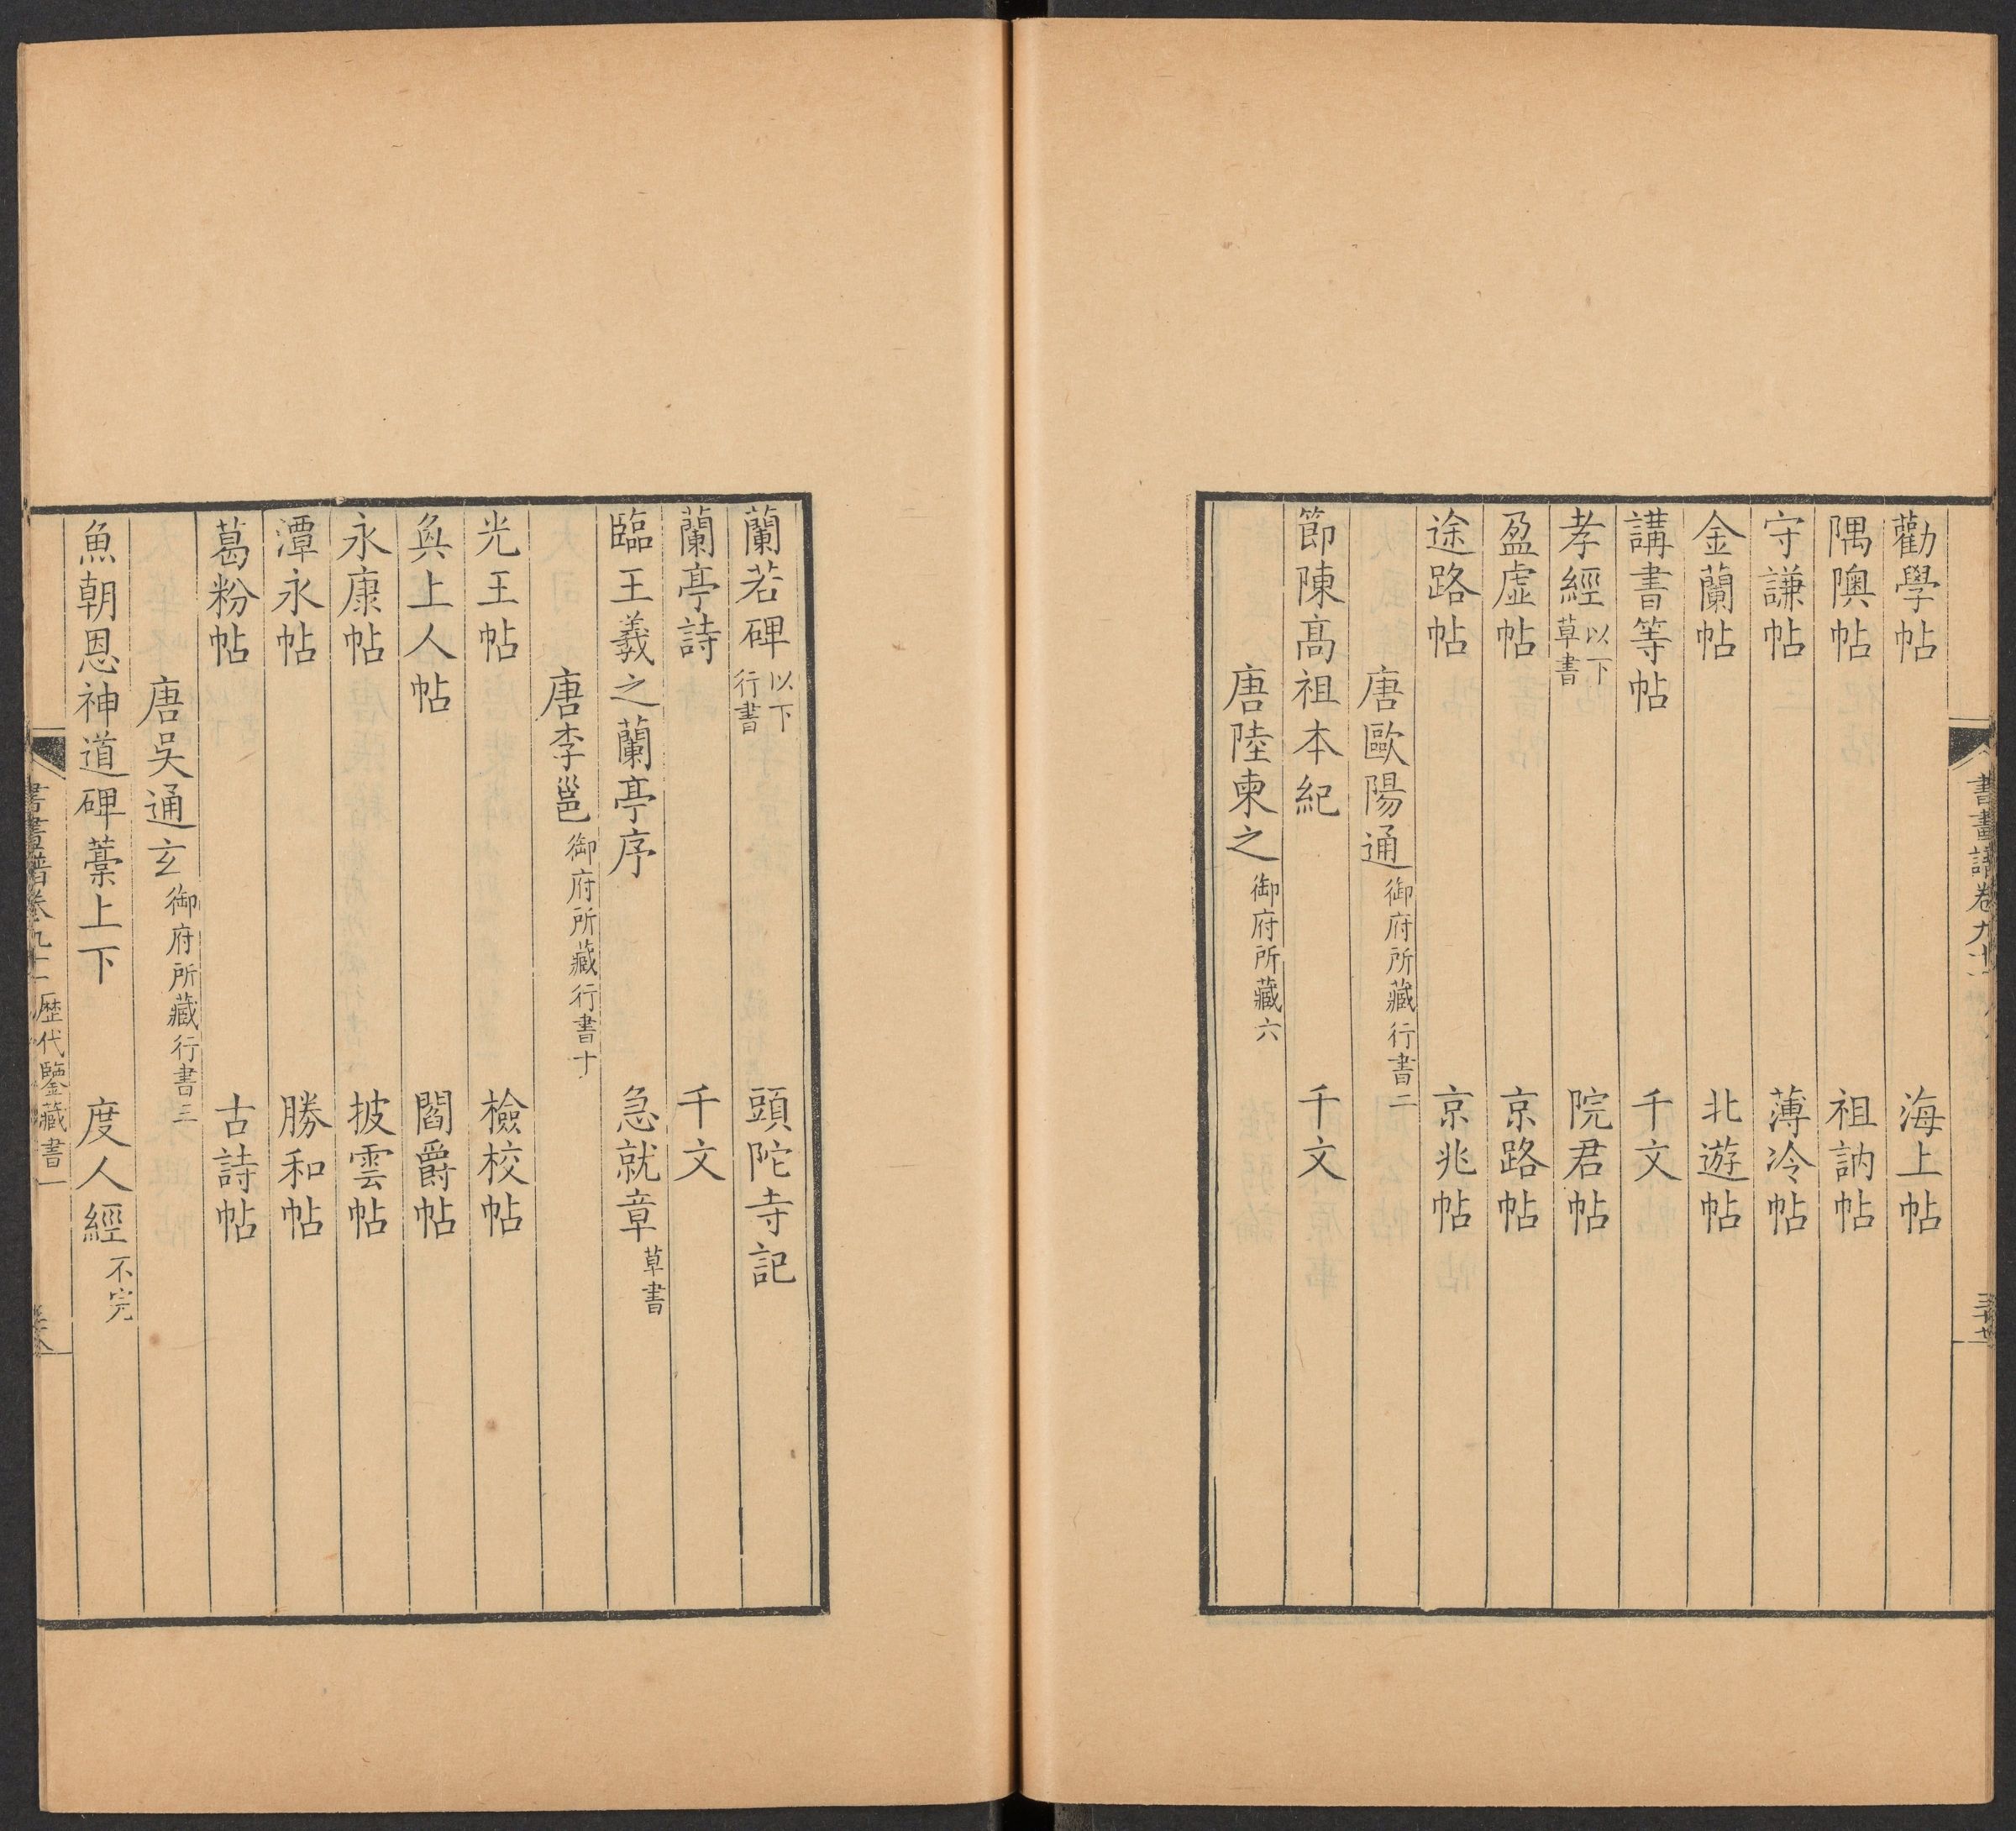 書畫譜卷九十一
三十七
勸學帖 海上帖
隅隩帖 祖訥帖
守謙帖 薄冷帖
金蘭帖 北遊帖
講書等帖 千文
孝經以下草書 院君帖
盈虛帖 京路帖
途路帖 京兆帖
唐歐陽通御府所藏行書二
節陳高祖本紀 千文
唐陸柬之御府所藏六
蘭若碑以下行書 頭陀寺記
蘭亭詩 千文
臨王羲之蘭亭序 急就章草書
唐李邕御府所藏行書十
光王帖 檢校帖
奐上人帖 閻爵帖
永康帖 披雲帖
潭永帖 勝和帖
葛粉帖 古詩帖
唐吳通玄御府所藏行書三
魚朝恩神道碑藁上下 度人經不完
書畫譜卷九十一 歷代鑒藏書一